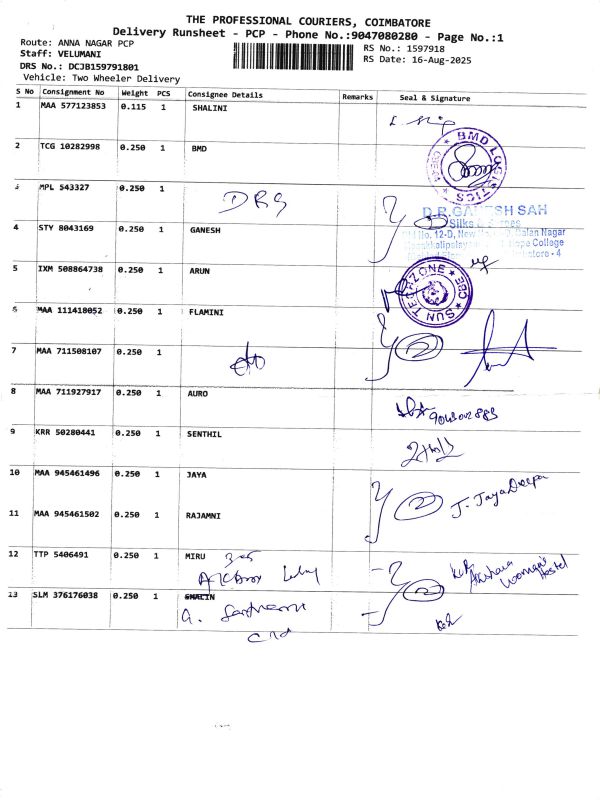 THE PROFESSIONAL COURIERS, COIMBATORE
Delivery Runsheet - PCP - Phone No.:9047080280 - Page No.:1
Route: ANNA NAGAR PCP
Staff: VELUMANI
DRS No.: DCJB159791801
Vehicle: Two Wheeler Delivery
RS No.: 1597918
RS Date: 16-Aug-2025
S No Consignment No Weight PCS Consignee Details Remarks Seal & Signature
1 MAA 577123853 0.115 1 SHALINI
2 TCG 10282998 0.250 1 BMD
BMD LOGISTICS
3 MPL 543327 0.250 1 DRG
4 STY 8043169 0.250 1 GANESH
D.R.GANESH SAH
Silks &
No. 12-D, New Dalan Nagar
Hope College
5 IXM 508864738 0.250 1 ARUN
SUN TECHZONE ★ CBE ★
6 MAA 111418052 0.250 1 FLAMINI
7 MAA 711508107 0.250 1
2
8 MAA 711927917 0.250 1 AURO
9 KRR 50280441 0.250 1 SENTHIL
10 MAA 945461496 0.250 1 JAYA
2 J. JayaDeepa
11 MAA 945461502 0.250 1 RAJAMNI
12 TTP 5406491 0.250 1 MIRU
2 Akshara Women's Hostel
13 SLM 376176038 0.250 1 SHALIN